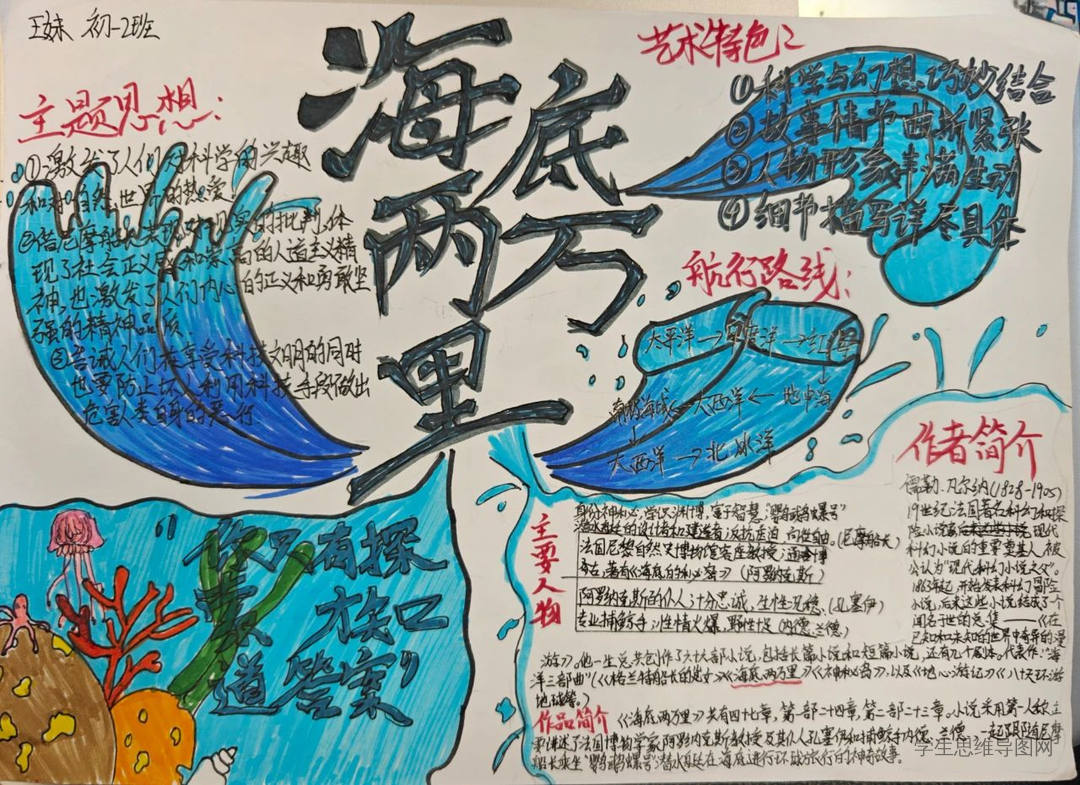 王妹 初一2班
海底
两万
里
主题思想：
①激发了人们对科学的兴趣
和对自然世界的热爱。
②借尼摩船长表现对现实的批判，体
现了社会正义感和崇高的人道主义精
神，也激发了人们内心的正义和勇敢坚
强的精神品质。
③告诫人们在享受科技文明的同时
也要防止坏人利用科技手段做出
危害人类自身的恶行.
艺术特色：
①科学与幻想巧妙结合
②故事情节曲折紧张
③人物形象丰满生动
④细节描写详尽具体
航行路线：
太平洋→印度洋→红海
南极海域←大西洋←地中海
大西洋→北冰洋
作者简介
儒勒·凡尔纳(1828-1905)
19世纪法国著名科幻和探
险小说家 现代
科幻小说的重要奠基人 被
公认为“现代科幻小说之父”。
1863年起，开始发表科幻冒险
小说，后来这些小说结成了个
闻名于世的总集——《在
已知和未知的世界中奇异的漫
游》。他一生总共创作了六十六部小说，包括长篇小说和短篇小说，还有几个剧本。代表作：“海
洋三部曲”(《格兰特船长的儿女》《海底两万里》《神秘岛》)，以及《地心游记》《八十天环游
地球等。
主要人物
身份神秘 学识渊博，富于智慧，“鹦鹉螺号”
潜水艇的设计者和建造者 反抗压迫 向往自由。(尼摩船长)
法国巴黎自然史博物馆客座教授，
著有《海底的秘密》(阿龙纳斯)
阿龙纳斯的仆人，十分忠诚，生性沉稳，(孔塞伊)
专业捕鲸手，性情火爆，野性 (内德·兰德)
你只有探
索 才知
道 答案”
作品简介 《海底两万里》共有四十七章，第一部二十四章，第二部二十三章。小说采用第一人称，主
要讲述了法国博物学家阿龙纳斯教授及其仆人孔塞伊和捕鲸手内德·兰德一起跟随尼摩
船长乘坐“鹦鹉螺号”潜水艇在海底进行环球旅行的神奇故事。
学生思维导图网